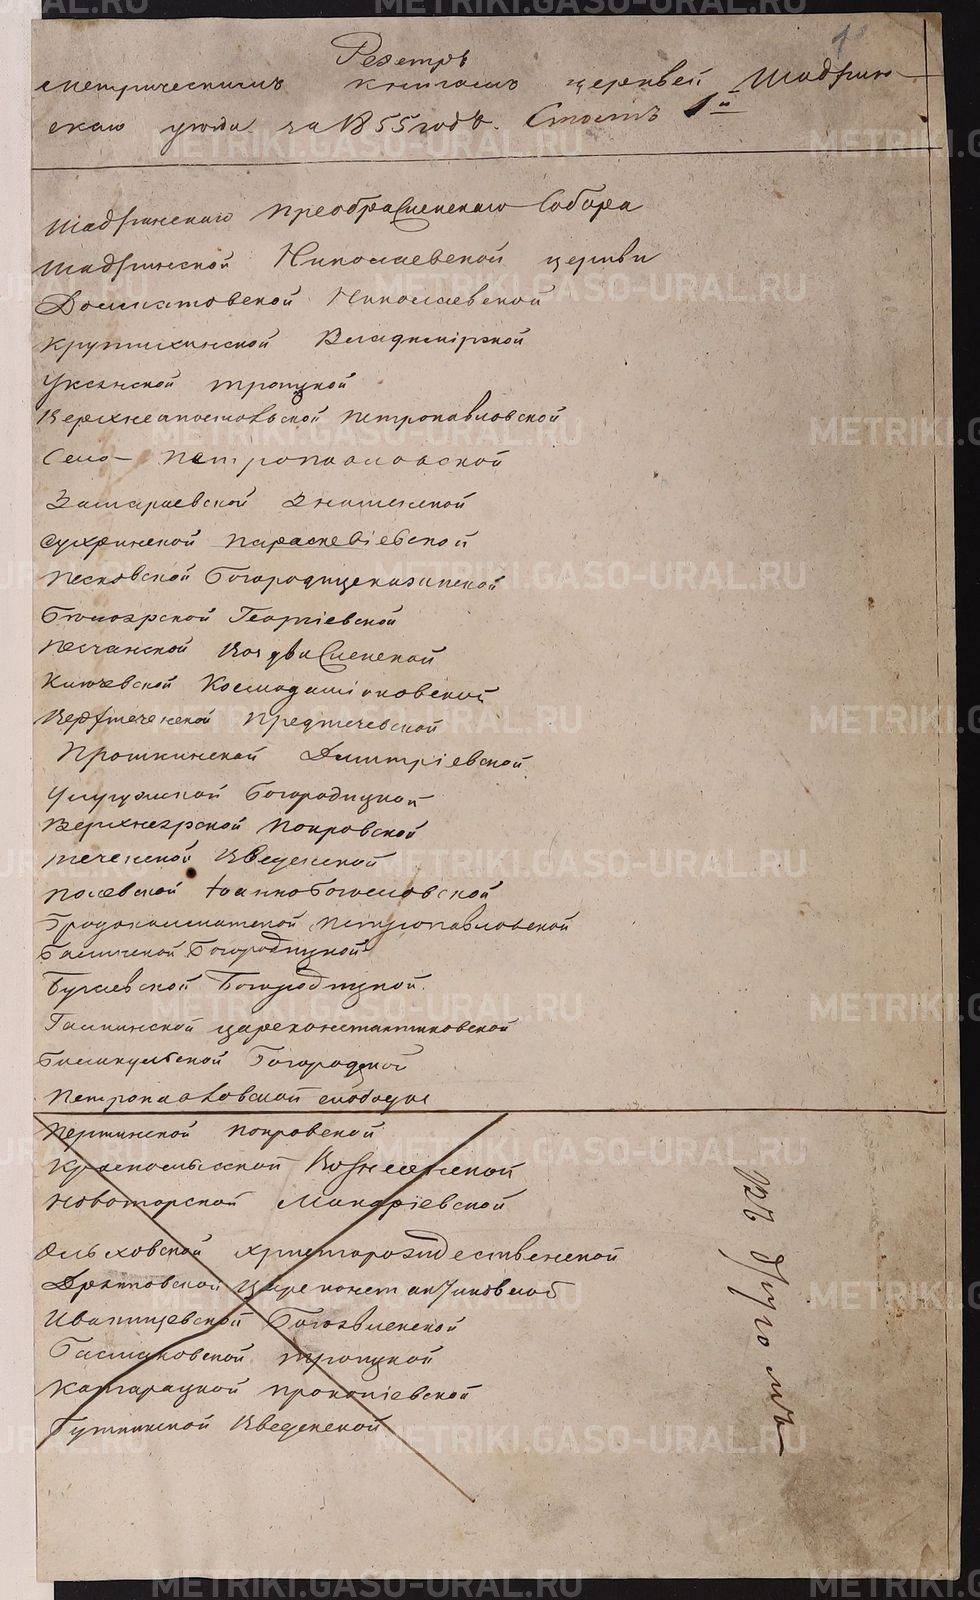 Реэстръ
метрическимъ книгамъ церквей Шадрин
скаго уезда за 1855 годъ. Часть 1й
Шадринскаго Преображенскаго Собора
Шадринской Николаевской церкви
Долматовской Николаевской
Крутихинской Владимірской
Уксянской Троицкой
Петропавловской
Село Петропавловской
Замараевской Знаменской
Сухринской Параскевіевской
Песковской Богородицеказанской
Георгіевской
Песчанской Воздвиженской
Ключевской Космодаміановской
Верхтеченской Предтечевской
Прошкинской Димитріевской
Богородицкой
Верхнеярской Покровской
Теченской Введенской
Полевской Іоаннобогословской
Петропавловской
Богородицкой
Бугаевской Богородицкой
Галкинской Цареконстантиновской
Богородицкой
Петропавловской слободы
Першинской Покровской
Красномысской Вознесенской
Новоторской Макаріевской
Ольховской Христорождественской
Цареконстантиновской
Иванищевской Богоявленской
Басмановской Троицкой
Катарацкой Прокопіевской
Буткинской Введенской
въ другомъ
METRIKI.GASO-URAL.RU